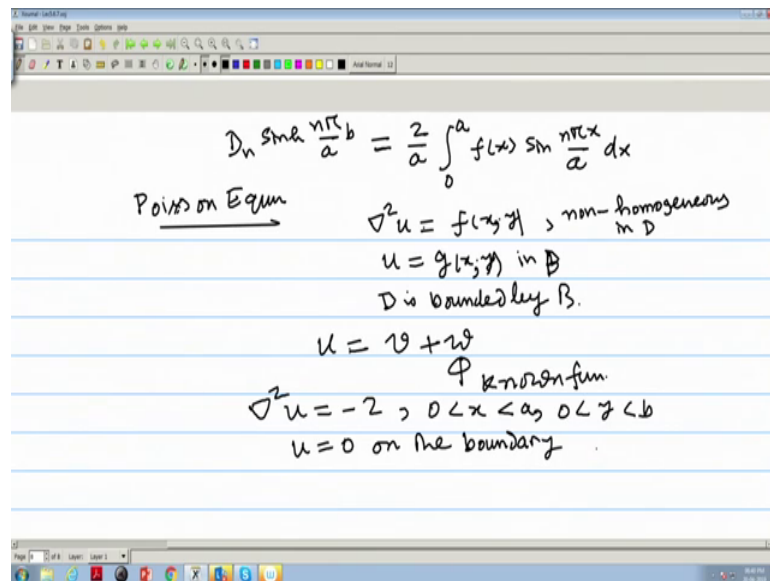 Journal - Lec5.6.7.xoj
File Edit View Page Tools Options Help
Arial Normal 12
D_n sinh nπ/a b = 2/a ∫_0^a f(x) sin nπx/a dx
Poisson Equn
∇²u = f(x,y), non-homogeneous in D
u = g(x,y) in B
D is bounded by B.
u = v + w
known fun.
∇²u = -2, 0 < x < a, 0 < y < b
u = 0 on the boundary
Page of 8 Layer: Layer 1